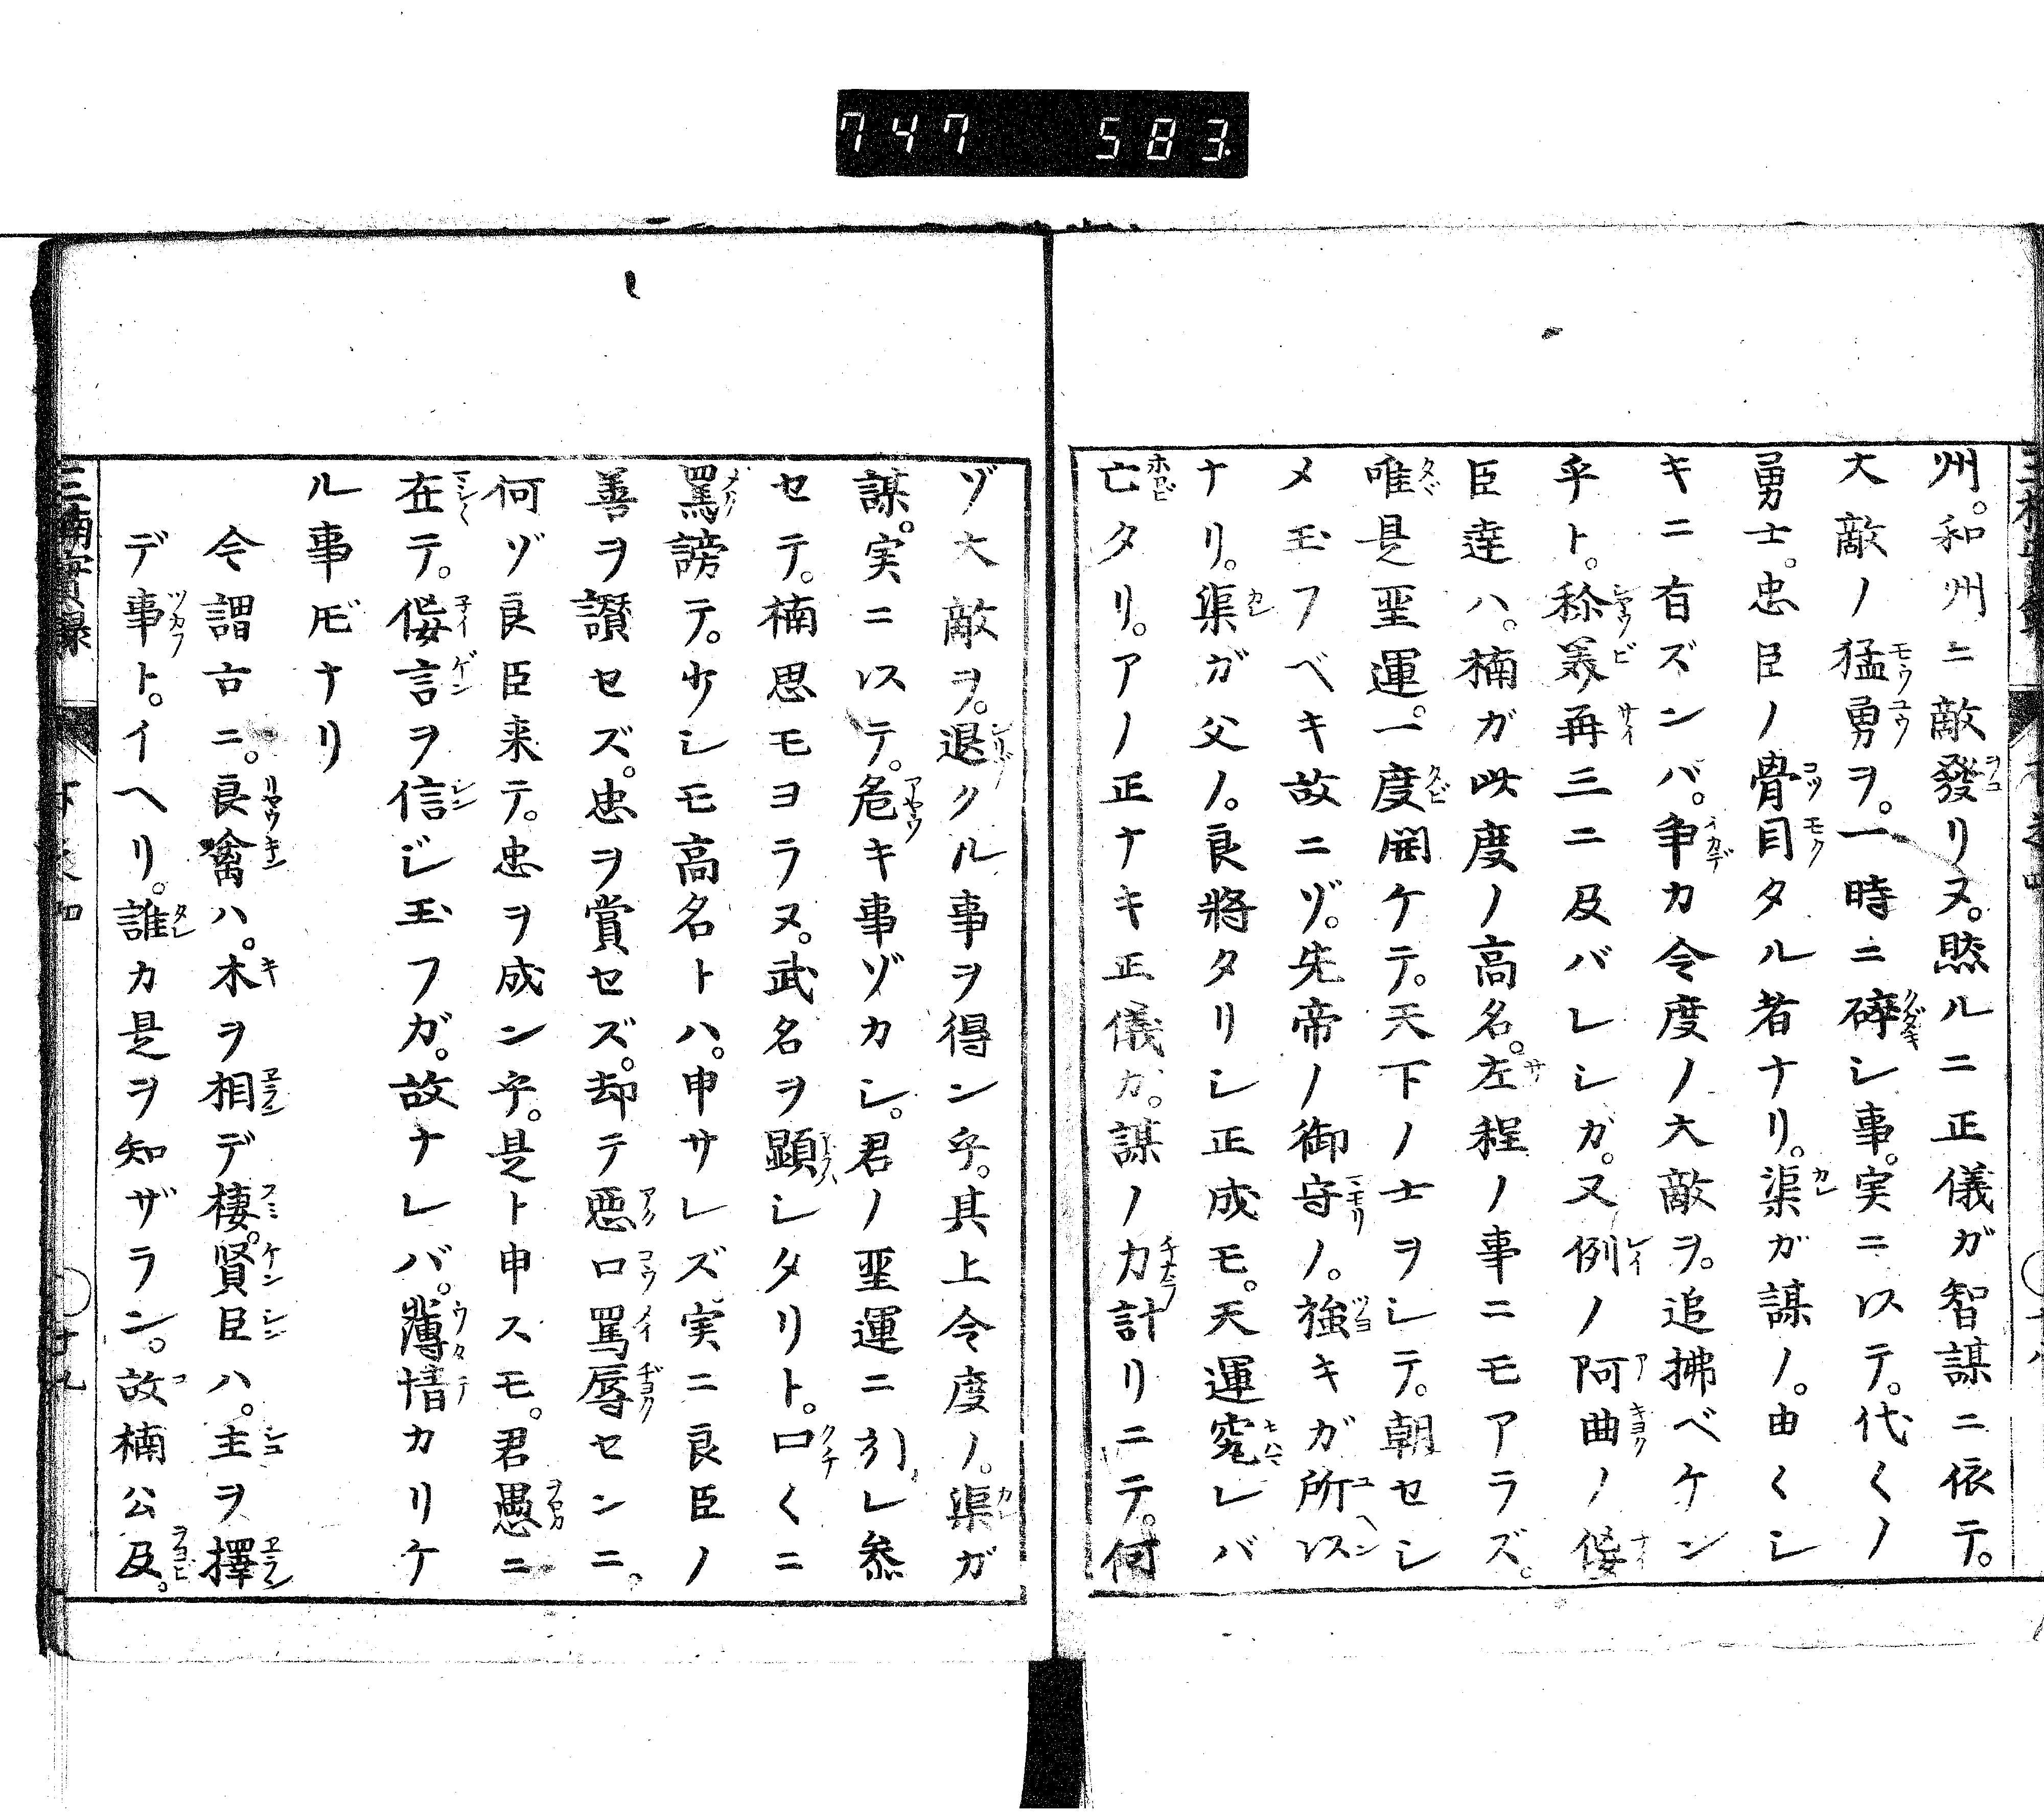 747 583
州。和州ニ敵發リヌ。然ルニ正儀ガ智謀ニ依テ。
大敵ノ猛勇ヲ。一時ニ碎シ事。実ニ以テ。代〱ノ
勇士。忠臣ノ骨目タル者ナリ。渠ガ謀ノ。由〱シ
キニ有ズンバ。争カ今度ノ大敵ヲ。追拂ベケン
乎ト。称美再三ニ及バレシガ。又例ノ阿曲ノ侫
臣達ハ。楠ガ此度ノ高名。左程ノ事ニモアラズ。
唯是聖運。一度開ケテ。天下ノ士ヲシテ。朝セシ
メ玉フベキ故ニゾ。先帝ノ御守ノ。強キガ所以
ナリ。渠ガ父ノ。良將タリシ正成モ。天運究レバ
亡タリ。アノ正ナキ正儀カ。謀ノ力計リニテ。何
ゾ大敵ヲ。退クル事ヲ得ン乎。其上今度ノ。渠ガ
謀。実ニ以テ。危キ事ゾカシ。君ノ聖運ニ引レ參
セテ。楠思モヨラヌ。武名ヲ顕シタリト。口〱ニ
罵謗テ。少シモ高名トハ。申サレズ実ニ良臣ノ
善ヲ讃セズ。忠ヲ賞セズ。却テ悪口罵辱センニ。
何ゾ良臣来テ。忠ヲ成ン乎。是ト申スモ。君愚ニ
在テ。侫言ヲ信ジ玉フガ。故ナレバ。薄情カリケ
ル事𪜈ナリ
今謂古ニ。良禽ハ。木ヲ相デ棲。賢臣ハ。主ヲ擇
デ事ト。イヘリ。誰カ是ヲ知ザラン。故楠公及。
三楠實録